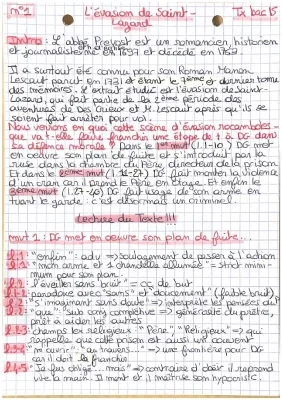 n°1 L'évasion de Saint-Lazard Tx bac 15
Intro : L'abbé Prévost est un romancier, historien
et journaliste né en 1697 et décédé en 1763.
Il a surtout été connu pour son Roman Manon
Lescaut paru en 1731 et étant le 7ème et dernier tome
des mémoires. L'extrait étudié est l'évasion de Saint-
Lazard, qui fait partie de la 2ème période des
aventures de Des Grieux et M. Lescaut après qu'ils se
soient fait arrêter pour vol.
Nous verrons en quoi cette scène d'évasion rocambolesque
que va-t-elle faire franchir une étape de + à DG dans
sa défence morale ? Dans le 1er mvt (l.1-10) DG met
en oeuvre son plan de fuite et s'introduit par la
ruse dans la chambre du Père, directeur de la prison
Et dans le 2ème mvt (l.11-27) DG fait monter la violence
d'un cran car il prend le Père en otage. Et enfin le
3ème mvt (l.27-40) DG fait usage de son arme en
tuant le garde : c'est désormais un criminel.
Lecture du Texte !!!
mvt 1 : DG met en oeuvre son plan de fuite...
l.1 : "enfin" : adv => soulagement de passer à l'action
l.1 : "mon arme et 1 chandelle allumée" = strict mini-
mum pour son plan.
l.2 : "l'éveiller sans bruit" = cc de but
l.2 : paradoxe avec "sans" et "doucement" (faible bruit)
l.2 : "s'imaginant sans doute" => interprète les pensées du P
l.2 : "que" : sub conj complétive => générosité du prêtre,
prêt à aider les autres
l.3 : champs lex religieux : "Père", "Religieux" => qui
rappelle que cette prison est aussi un couvent
l.3-4 : "m'ouvrir" "au travers..." => une frontière pour DG
car il doit la franchir
l.4-5 : "Je fus obligé... mais" => contraire d'obéir il reprend
vite la main. Il ment et il maîtrise son hypocrisie.